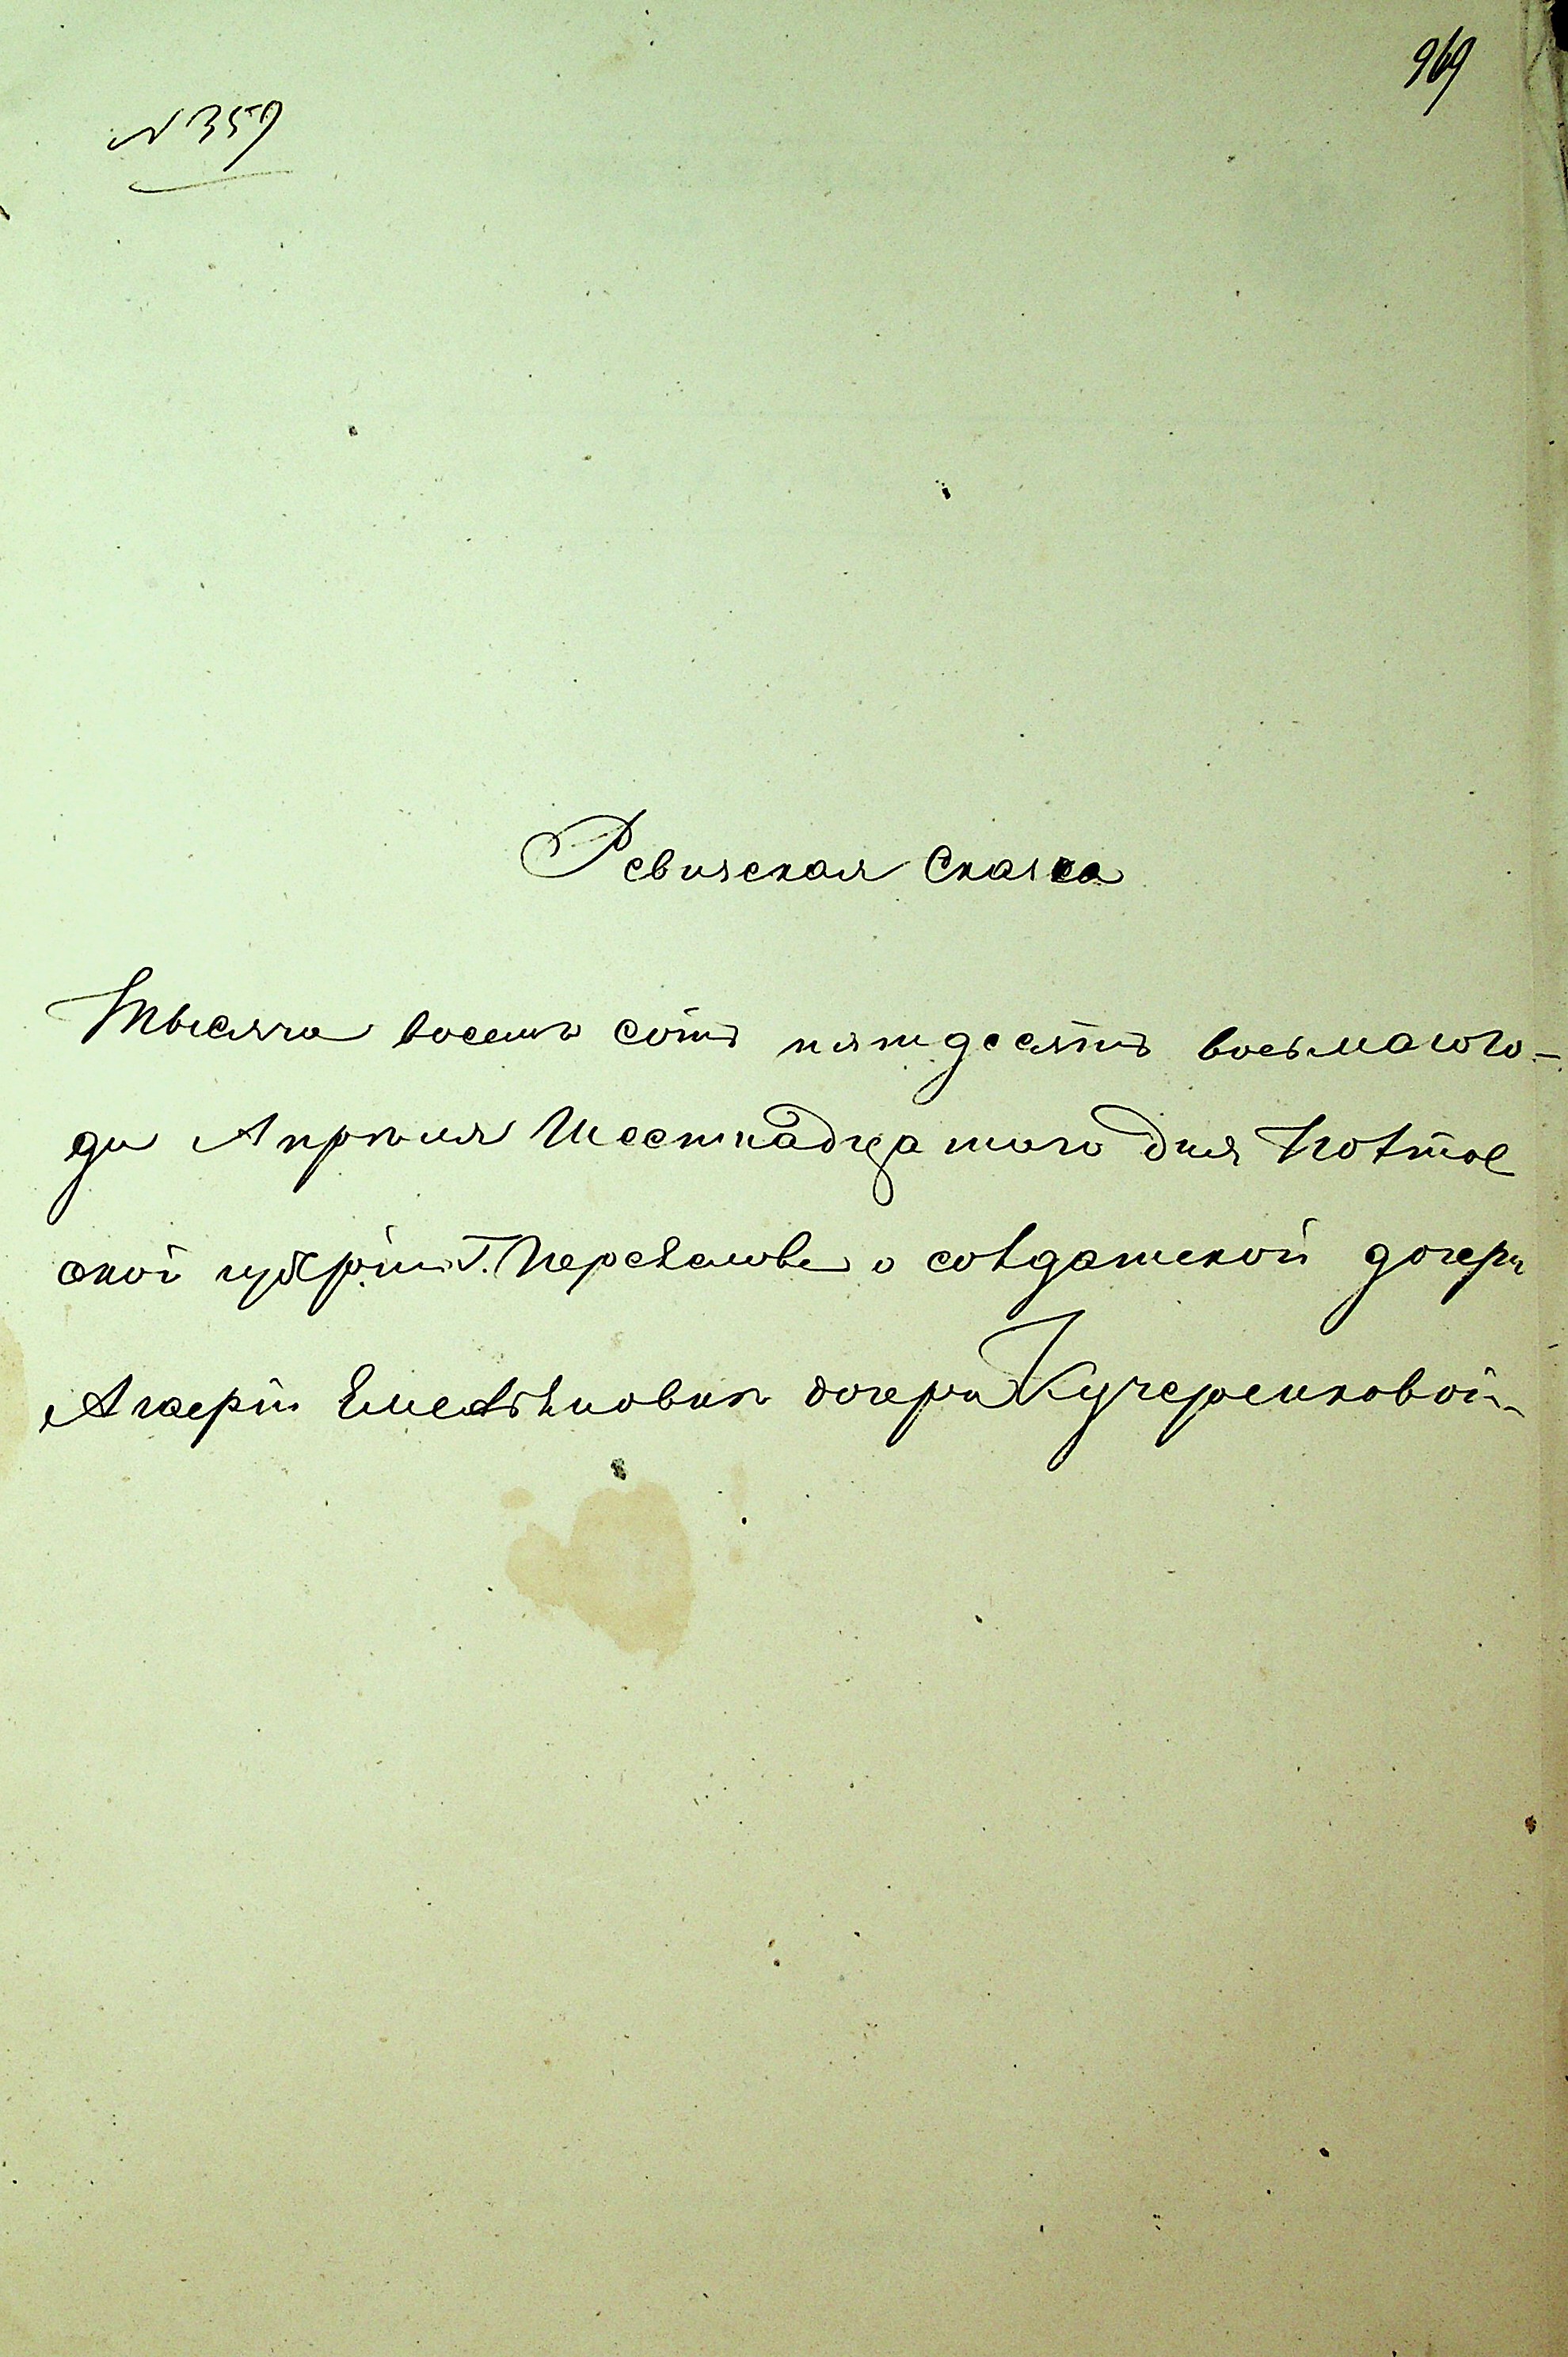 969
N 359
Ревизская Сказка
Тысяча восемь сотъ пятдесятъ восьмаго го-
да Апреля Шестнадцатого дня Полтов
ской губерніи Г. Переяслова о солдатской дочери
Емельяновой дочери Кучеренковой